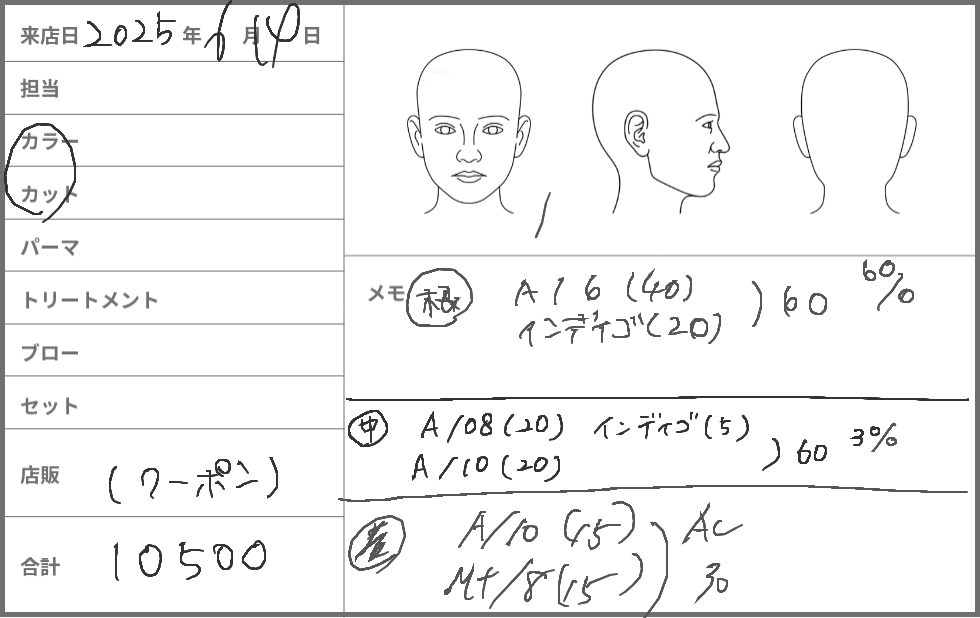 来店日 2025年6月14日
担当
カラー
カット
パーマ
トリートメント
ブロー
セット
店販 (クーポン)
合計 10500
メモ 根 A/6 (40) ) 60 60%
インディゴ(20)
中 A/08(20) インディゴ(5) ) 60 3%
A/10(20)
A/10 (15) ) AC
MT/8(15) 30